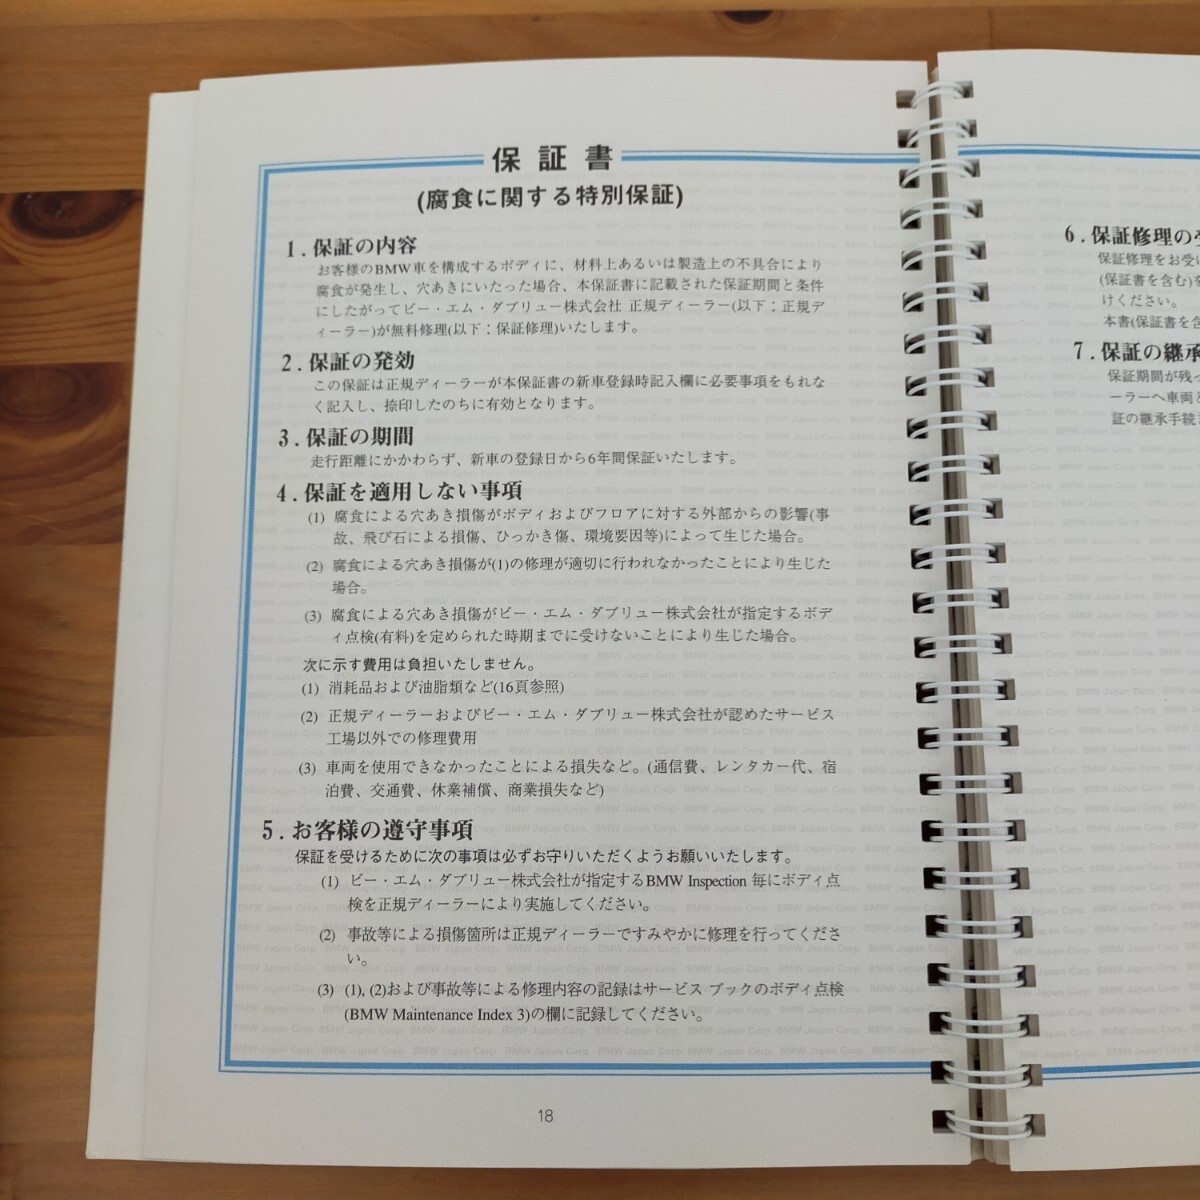 保証書
(腐食に関する特別保証)
1. 保証の内容
お客様のBMW車を構成するボディに、材料上あるいは製造上の不具合により
腐食が発生し、穴あきにいたった場合、本保証書に記載された保証期間と条件
にしたがってビー・エム・ダブリュー株式会社 正規ディーラー(以下：正規デ
ィーラー)が無料修理(以下：保証修理)いたします。
2. 保証の発効
この保証は正規ディーラーが本保証書の新車登録時記入欄に必要事項をもれな
く記入し、捺印したのちに有効となります。
3. 保証の期間
走行距離にかかわらず、新車の登録日から6年間保証いたします。
4. 保証を適用しない事項
(1) 腐食による穴あき損傷がボディおよびフロアに対する外部からの影響(事
故、飛び石による損傷、ひっかき傷、環境要因等)によって生じた場合。
(2) 腐食による穴あき損傷が(1)の修理が適切に行われなかったことにより生じた
場合。
(3) 腐食による穴あき損傷がビー・エム・ダブリュー株式会社が指定するボデ
ィ点検(有料)を定められた時期までに受けないことにより生じた場合。
次に示す費用は負担いたしません。
(1) 消耗品および油脂類など(16頁参照)
(2) 正規ディーラーおよびビー・エム・ダブリュー株式会社が認めたサービス
工場以外での修理費用
(3) 車両を使用できなかったことによる損失など。(通信費、レンタカー代、宿
泊費、交通費、休業補償、商業損失など)
5. お客様の遵守事項
保証を受けるために次の事項は必ずお守りいただくようお願いいたします。
(1) ビー・エム・ダブリュー株式会社が指定するBMW Inspection 毎にボディ点
検を正規ディーラーにより実施してください。
(2) 事故等による損傷箇所は正規ディーラーですみやかに修理を行ってくださ
い。
(3) (1), (2)および事故等による修理内容の記録はサービス ブックのボディ点検
(BMW Maintenance Index 3)の欄に記録してください。
18
6. 保証修理の
保証修理をお受け
(保証書を含む)を
けください。
本書(保証書を含
7. 保証の継承
保証期間が残っ
ーラーへ車両と
証の継承手続